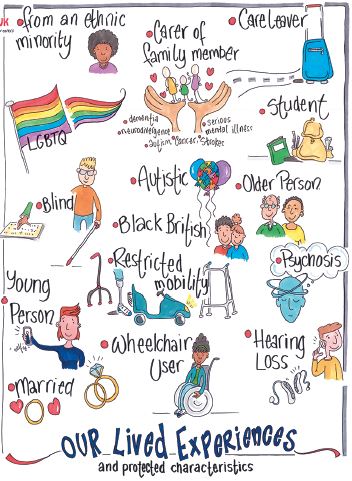 UK
•from an ethnic
minority
•Carer of
family member
•Care leaver
•dementia
•neurodivergence
•autism
•Cancer
•Stroke
•serious
mental illness
LGBTQ
•Student
•Blind
Autistic
•Older Person
•Black British
•Psychosis
•Restricted
mobility
Young
•Person
•Wheelchair
User
•Hearing
Loss
•Married
OUR Lived EXPERIENCES
and protected characteristics